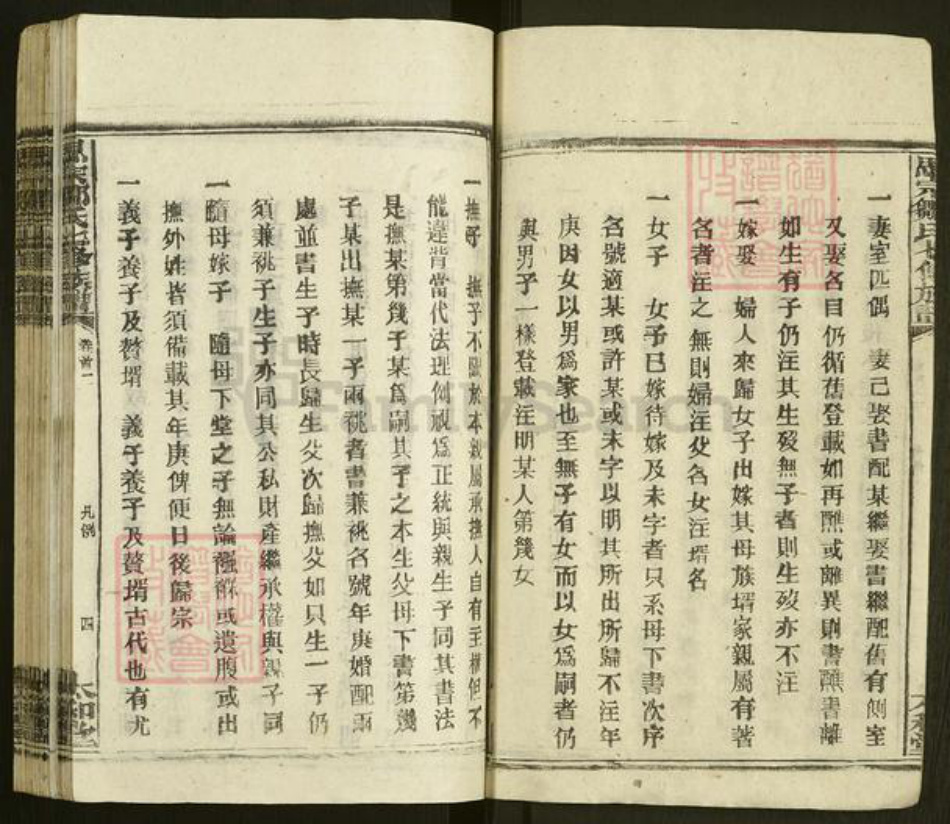 一妻室匹偶　妻已娶書配某繼娶書繼配舊有側室
又娶名目仍循舊登載如再醮或離異則書醮書離
如生有子仍注其生歿無子者則生歿亦不注
一嫁娶　婦人來歸女子出嫁其母族壻家親屬有著
名者注之無則婦注父名女注壻名
一女子　女子已嫁待嫁及未字者只系母下書次序
名號適某或許某或未字以明其所出所歸不注年
庚因女以男爲家也至無子有女而以女爲嗣者仍
與男子一樣登載注明某人第幾女
一撫子　撫子不限於本親屬承撫人自有主權但不
能違背當代法理倒視爲正統與親生子同其書法
是撫某第幾子某爲嗣其子之本生父母下書第幾
子某出撫某一子兩祧者書兼祧名號年庚婚配兩
處並書生子時長歸生父次歸撫父如只生一子仍
須兼祧子生子亦同其公私財產繼承權與親子同
一隨母嫁子　隨母下堂之子無論襁褓或遺腹或出
撫外姓皆須備載其年庚俾便日後歸宗
一義子養子及贅壻　義子養子及贅壻古代也有尤
卷首一
凡例
四
太和堂
FamilySearch